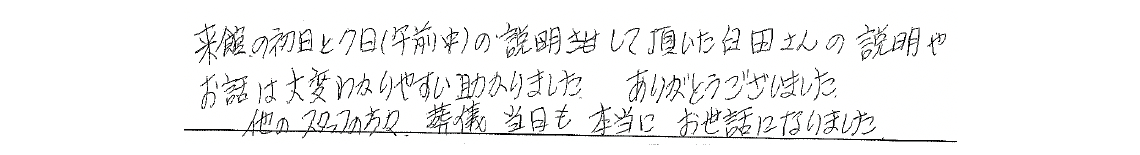 来館の初日と7日(午前中)の説明して頂いた臼田さんの説明や
お話は大変わかりやすい助かりました ありがとうございました
他のスタッフの方々 葬儀 当日も 本当に お世話になりました